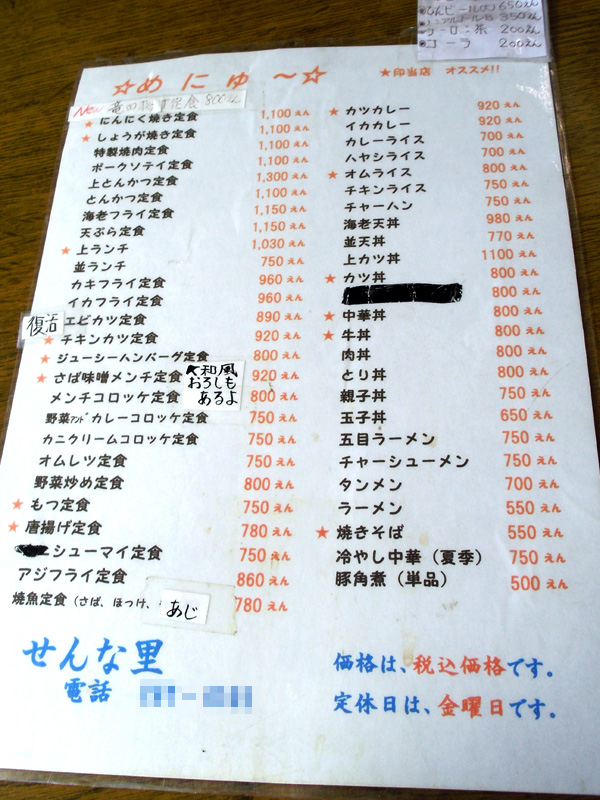 びんビール(大) 650えん
350えん
ウーロン茶 200えん
コーラ 200えん
☆めにゅ～☆
★印当店 オススメ!!
New 定食 800えん
★にんにく焼き定食 1,100えん
★しょうが焼き定食 1,100えん
特製焼肉定食 1,100えん
ポークソテイ定食 1,100えん
上とんかつ定食 1,300えん
とんかつ定食 1,100えん
海老フライ定食 1,150えん
天ぷら定食 1,150えん
★上ランチ 1,030えん
並ランチ 750えん
カキフライ定食 960えん
イカフライ定食 960えん
復活 エビカツ定食 890えん
★チキンカツ定食 920えん
★ジューシーハンバーグ定食 800えん
←和風おろしもあるよ
★さば味噌メンチ定食 920えん
メンチコロッケ定食 800えん
野菜アンドカレーコロッケ定食 750えん
カニクリームコロッケ定食 750えん
オムレツ定食 750えん
野菜炒め定食 800えん
★もつ定食 750えん
★唐揚げ定食 780えん
シューマイ定食 750えん
アジフライ定食 860えん
焼魚定食（さば、ほっけ、あじ 780えん
★カツカレー 920えん
イカカレー 920えん
カレーライス 700えん
ハヤシライス 700えん
★オムライス 800えん
チキンライス 750えん
チャーハン 750えん
海老天丼 980えん
並天丼 770えん
上カツ丼 1100えん
★カツ丼 800えん
800えん
★中華丼 800えん
★牛丼 800えん
肉丼 800えん
とり丼 800えん
親子丼 750えん
玉子丼 650えん
五目ラーメン 750えん
チャーシューメン 750えん
タンメン 700えん
ラーメン 550えん
★焼きそば 550えん
冷やし中華（夏季） 750えん
豚角煮（単品） 500えん
せんな里
電話
価格は、税込価格です。
定休日は、金曜日です。